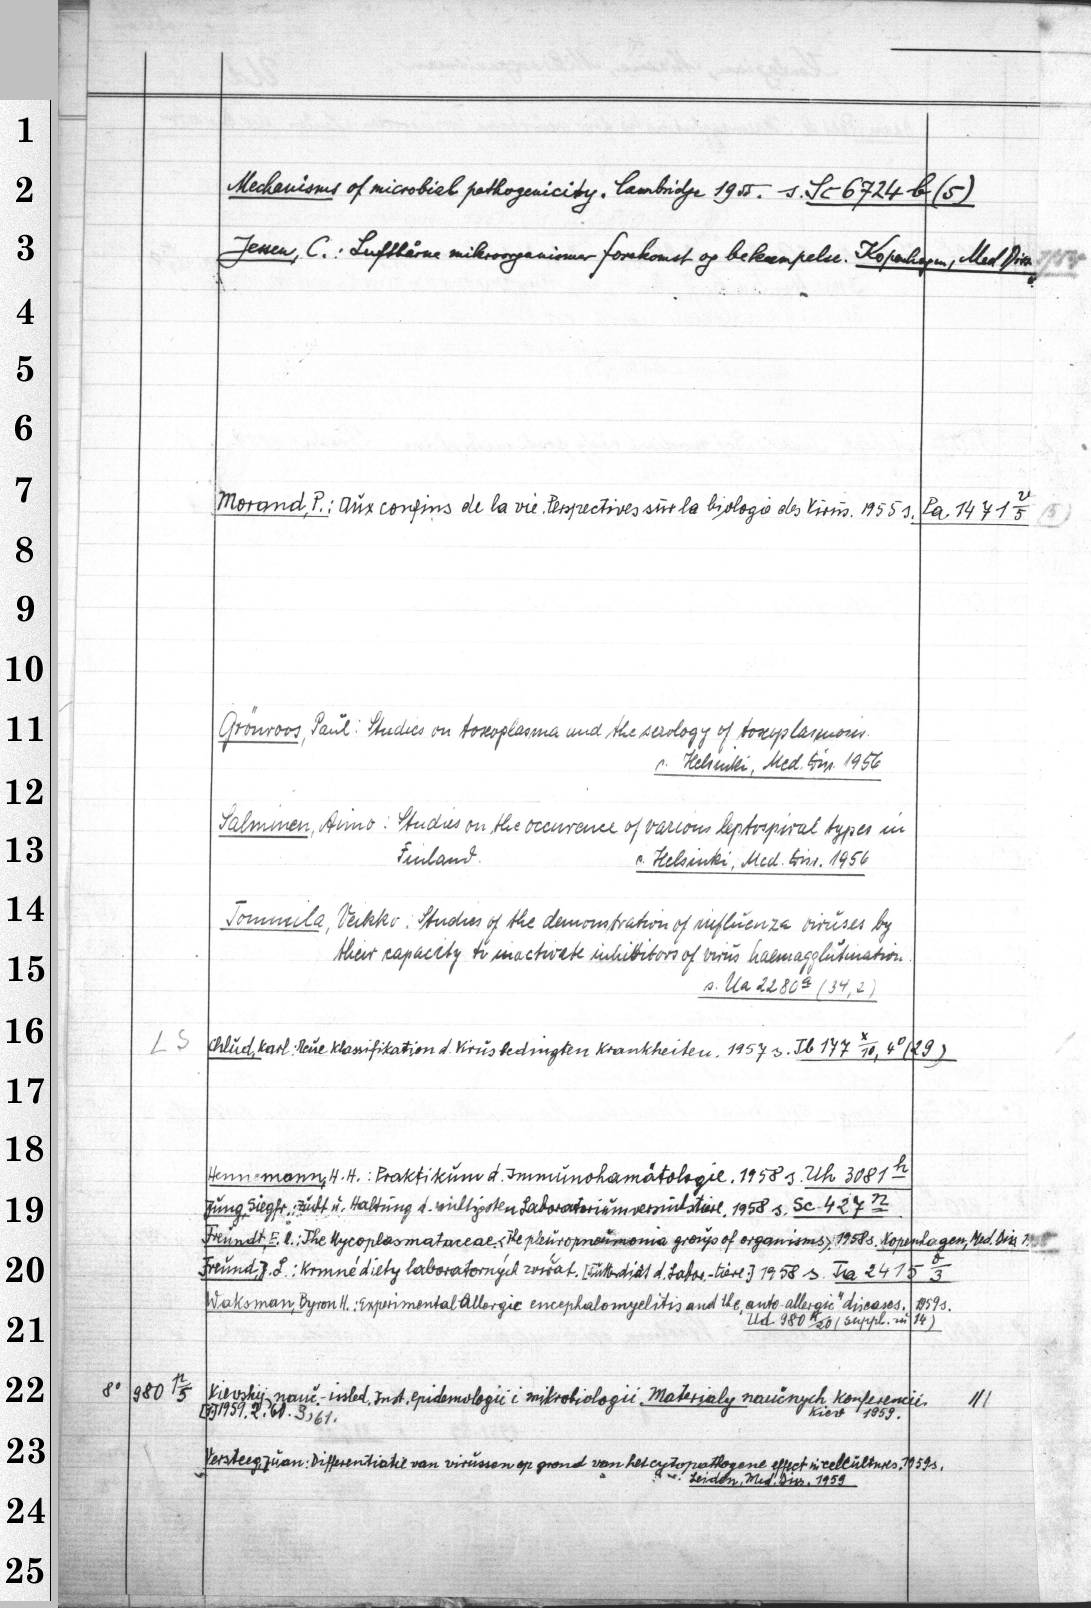 1
2 Mechanisms of microbial pathogenicity. Cambridge 1955. s. Sc 6724 b (5)
3 Jessen, C.: Luftbårne mikroorganismer forekomst og bekæmpelse. Kopenhagen, Med Diss
4
5
6
7 Morand, P.: Aux confins de la vie. Perspectives sur la biologie des Virus. 1955 s. Pa 1471 v/5 (5)
8
9
10
11 Grönroos, Paul: Studies on toxoplasma and the serology of toxoplasmosis.
s. Helsinki, Med. Diss. 1956
12
Salminen, Aimo: Studies on the occurance of various leptospiral types in
13 Finland. s. Helsinki, Med. Diss. 1956
14 Tommila, Veikko: Studies of the demonstration of influenza viruses by
15 their capacity to inactivate inhibitors of virus haemagglutination.
s. Ua 2280 a (34,2)
16 LS Chlud, Karl: Neue Klassifikation d. Virusbedingten Krankheiten. 1957 s. Ib 177 x/10, 4° (29)
17
18 Hennemann, H.H.: Praktikum d. Immunohämatologie. 1958 s. Uh 3081 h
19 Jung, Siegfr.: Zucht u. Haltung d. wichtigsten Laboratoriumsversuchstiere. 1958 s. Sc 427 n
Freundt, E. A.: The Mycoplasmataceae. <The pleuropneumonia group of organisms>. 1958 s. Kopenhagen, Med. Diss
20 Freund, J. L.: Krmné diety laboratorných zvierat. [Futterdiät d. Labor.-tiere] 1958 s. Ta 2415 v/3
Waksman, Byron H.: Experimental Allergic encephalomyelitis and the "auto-allergic" diseases. 1959 s.
21 Ud 980 n/20 (Suppl. in 14)
22 8° 980 n/5 Kievskij nauč.-issled. Inst. Epidemologii i mikrobiologii. Materialy naučnych konferencii. III
[1] 1959. 2, 61. 3, 61. Kiev 1959.
23 Versteeg, Juan: Differentiatie van virussen op grond van het cytopathogene effect in celcultures. 1959 s.
Leiden, Med. Diss. 1959
24
25